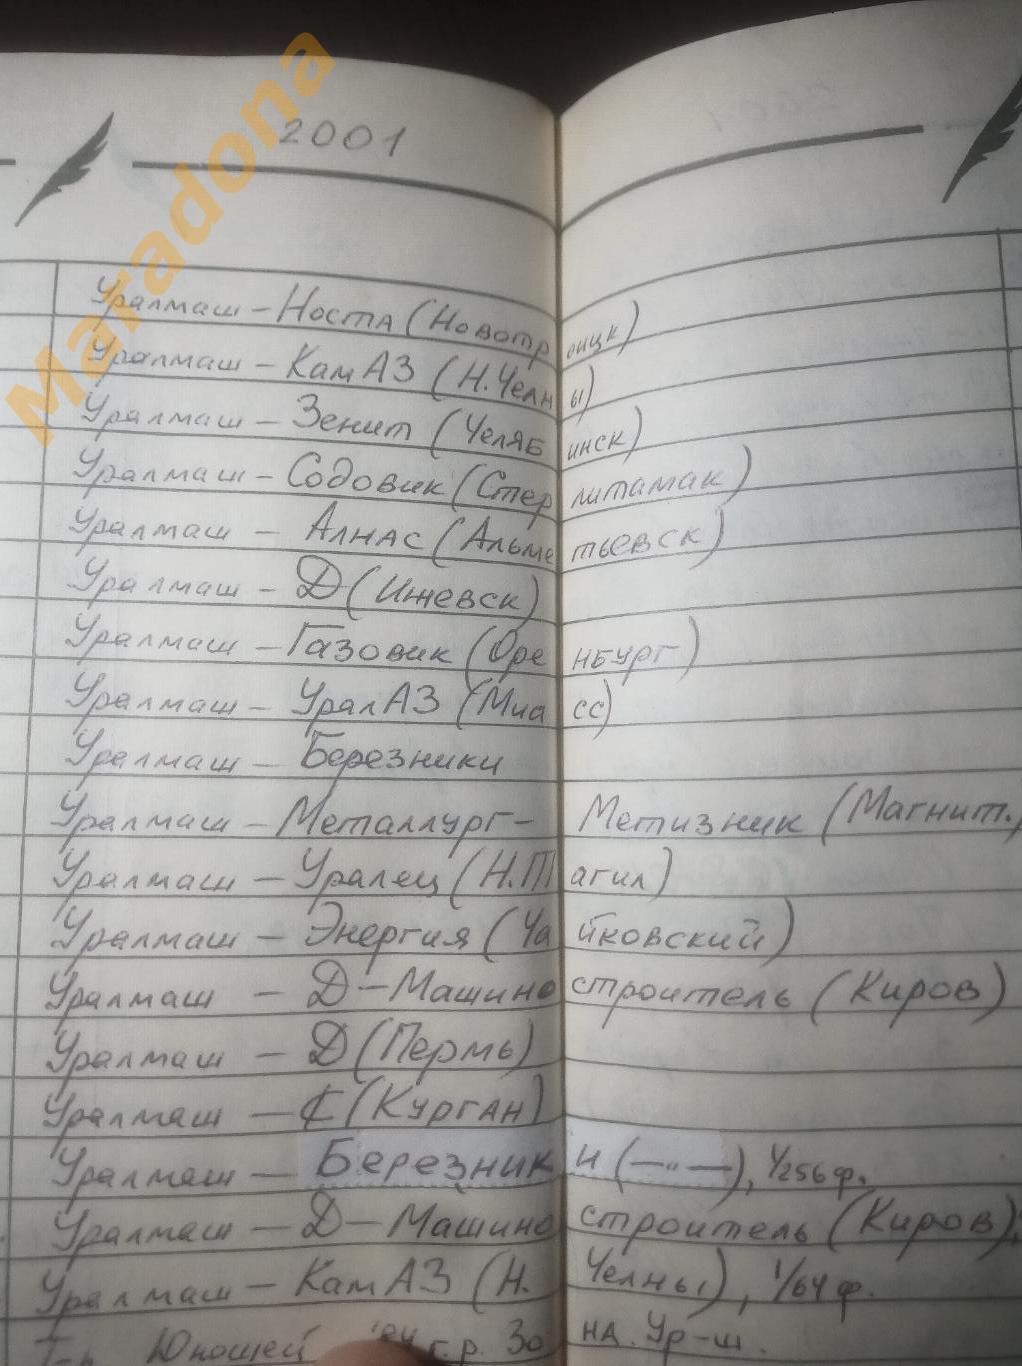 2001
Maradona
Уралмаш - Носта (Новотроицк)
Уралмаш - КамАЗ (Н.Челны)
Уралмаш - Зенит (Челябинск)
Уралмаш - Содовик (Стерлитамак)
Уралмаш - Алнас (Альметьевск)
Уралмаш - Д (Ижевск)
Уралмаш - Газовик (Оренбург)
Уралмаш - УралАЗ (Миасс)
Уралмаш - Березники
Уралмаш - Металлург - Метизник (Магнит.)
Уралмаш - Уралец (Н.Тагил)
Уралмаш - Энергия (Чайковский)
Уралмаш - Д-Машиностроитель (Киров)
Уралмаш - Д (Пермь)
Уралмаш - С (Курган)
Уралмаш - Березники (—"—), 1/256 ф.
Уралмаш - Д-Машиностроитель (Киров),
Уралмаш - КамАЗ (Н. Челны), 1/64 ф.
Юношей '84 г.р. Зона. Ур-ш.